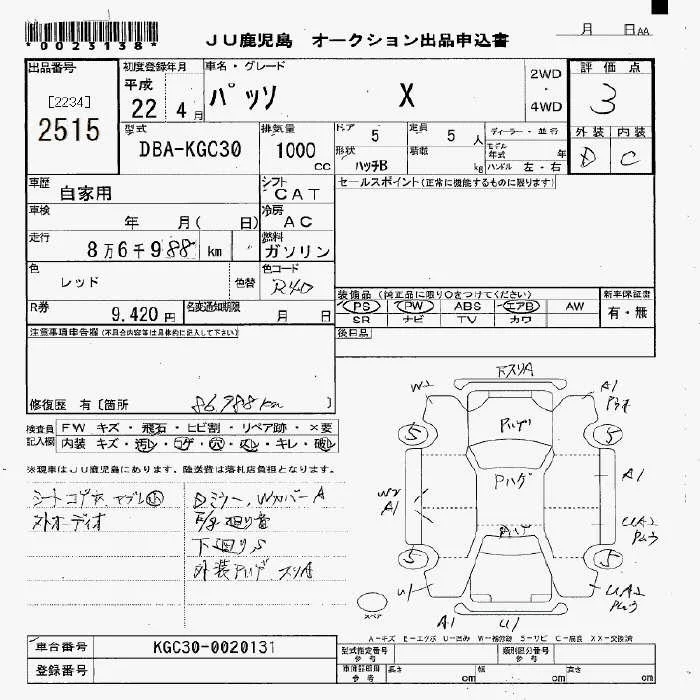 *0023138*
JU鹿児島 オークション出品申込書
月 日 AA
出品番号
[2234]
2515
初度登録年月
平成
22年4月
車名・グレード
パッソ X
2WD
・
4WD
評価点
3
外装 内装
D C
型式
DBA-KGC30
排気量
1000
cc
ドア 5
定員 5人
ディーラー・並行
形状 ハッチB
積載 kg
モデル年式 年
ハンドル 左・右
車歴
自家用
シフト
CAT
セールスポイント(正常に機能するものに限ります)
車検
年 月( 日)
冷房
AC
走行
8万6千988 km
燃料
ガソリン
色
レッド
色替
色コード
R40
装備品(純正品に限り○をつけてください)
新車保証書
PS PW ABS エアB AW
有・無
SR ナビ TV カワ
R券
9,420円
名変通知期限
月 日
後日品
注意事項申告欄(不具合内容等は具体的に記入して下さい)
修復歴 有〔箇所 86,988km 〕
検査員記入欄
FW キズ・飛石・ヒビ割・リペア跡・×要
内装 キズ・汚レ・コゲ・穴・スレ・キレ・破レ
※現車はJU鹿児島にあります。陸送費は落札店負担となります。
ストオーディオ
外装
下スリA
W2
A1
5
5
Pハゲ
A1
W2
A1
UA2
5
5
U1
UA2
スペア
A1
U1
A-キズ E-エクボ U-凹み W-補修跡 S-サビ C-腐食 XX-交換済
車台番号
KGC30-0020131
登録番号
型式指定番号
参考
類別区分番号
参考
車両詳細用
参考
長さ cm
幅 cm
高さ cm